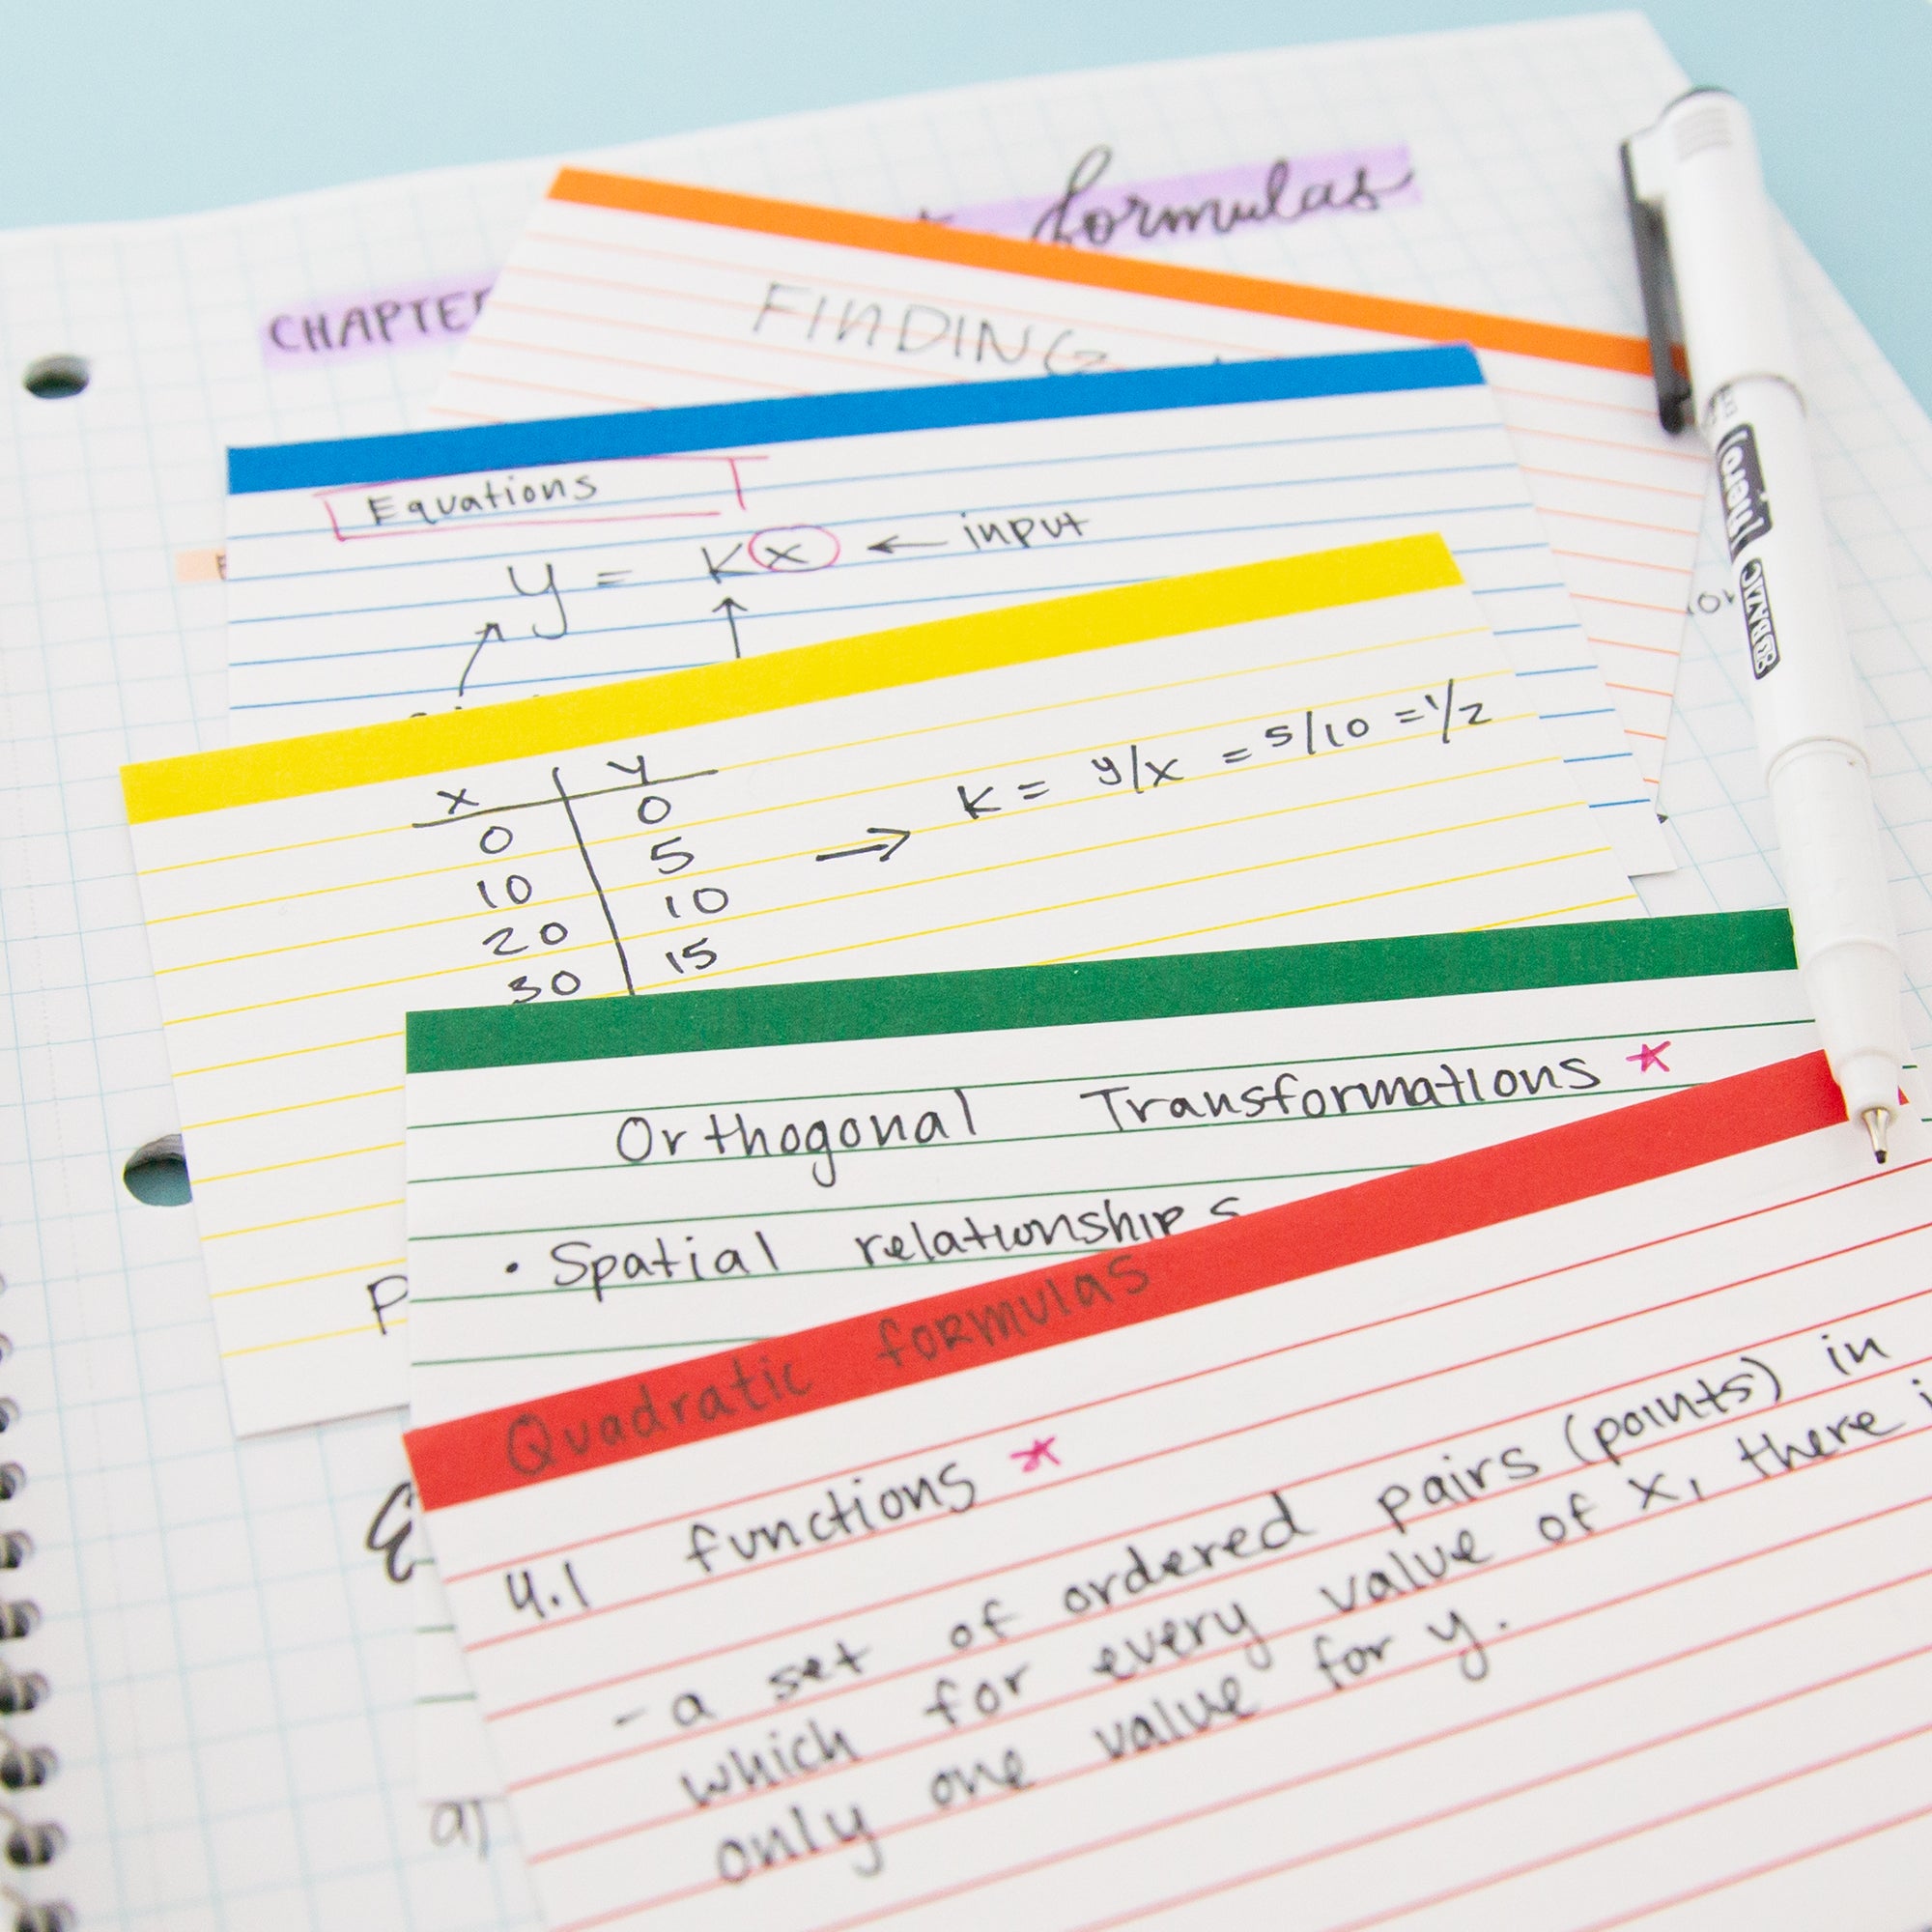 formulas
CHAPTER
FINDING
Equations
y = kx ← input
x y
0 0
10 5
20 10
30 15
→ K = y/x = 5/10 = 1/2
Orthogonal Transformations *
• Spatial relationships
P
Quadratic formulas
4.1 functions *
- a set of ordered pairs (points) in
which for every value of x, there i
only one value for y.
a)